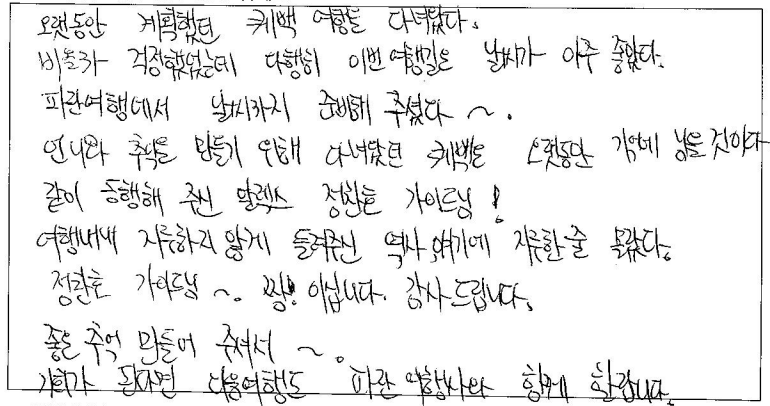 오랫동안 계획했던 퀘백 여행을 다녀왔다.
비올까 걱정했었는데 다행히 이번 여행길은 날씨가 아주 좋았다.
파란여행에서 날씨까지 준비해 주셨다 ~.
언니와 추억을 만들기 위해 다녀왔던 퀘백은 오랫동안 기억에 남을 것이다
같이 동행해 주신 알렉스 정찬호 가이드님!
여행내내 지루하지 않게 들려주신 역사 얘기에 지루한줄 몰랐다.
정찬호 가이드님 ~. 짱! 이십니다. 감사드립니다.
좋은 추억 만들어 주셔서 ~.
기회가 된다면 다음여행도 파란 여행사와 함께 할겁니다.